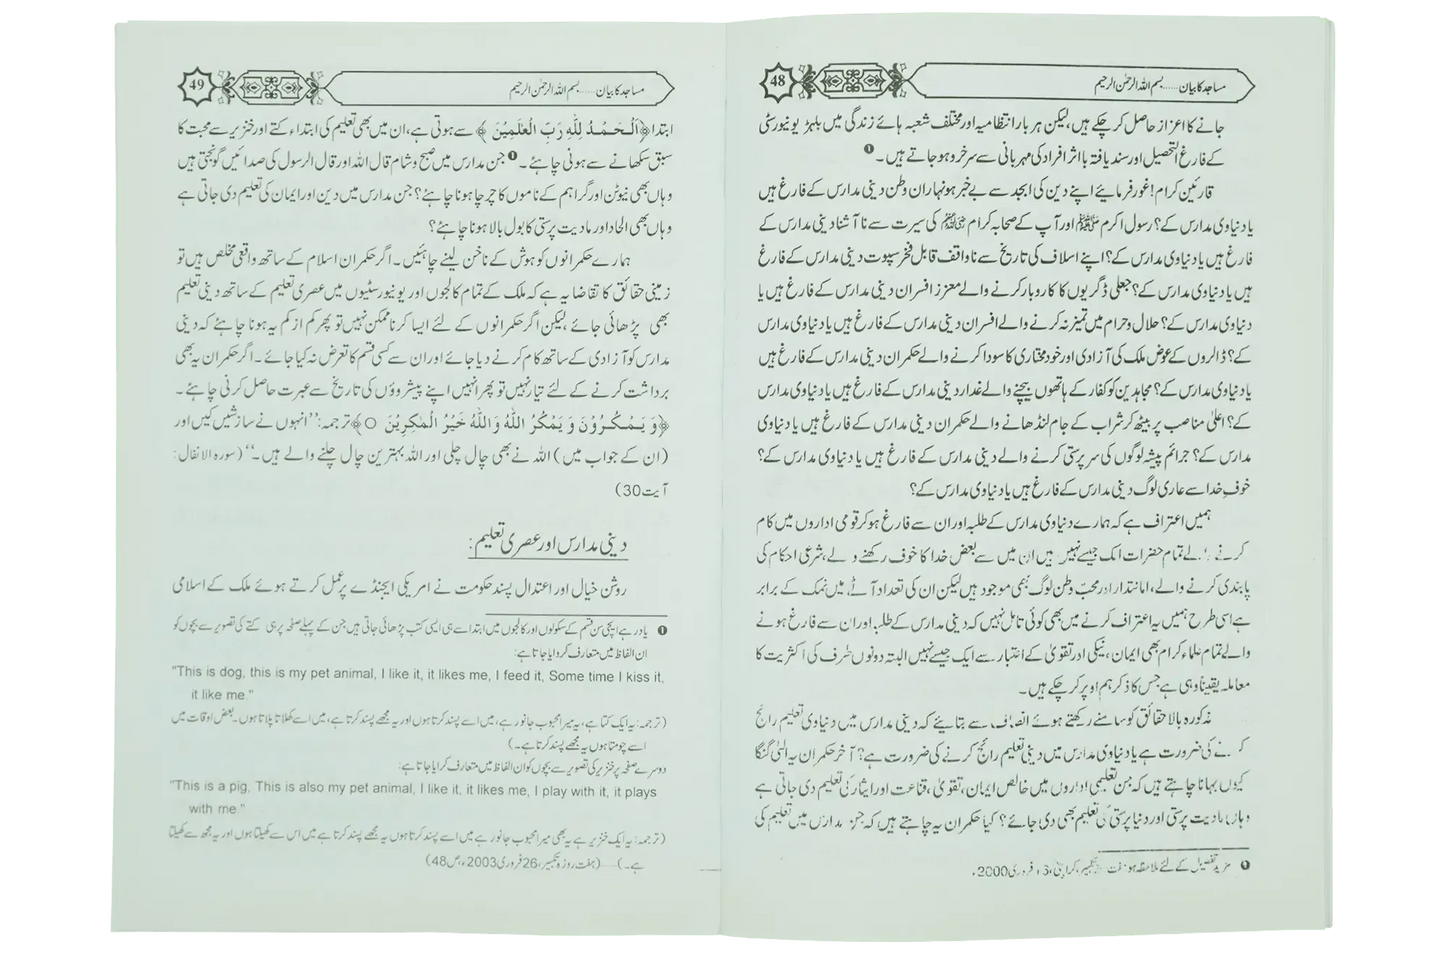 48
مساجد کا بیان......بسم اللہ الرحمٰن الرحیم
جانے کا اعزاز حاصل کر چکے ہیں، لیکن ہر بار انتظامیہ اور مختلف شعبہ ہائے زندگی میں یہی یونیورسٹی
کے فارغ التحصیل اور سند یافتہ با اثر افراد کی مہربانی سے سرخرو ہو جاتے ہیں۔❶
قارئین کرام! غور فرمائیے اپنے دین کی ابجد سے بے خبر ہونہاران وطن دینی مدارس کے فارغ ہیں
یا دنیاوی مدارس کے؟ رسول اکرم ﷺ اور آپ کے صحابہ کرام ﷢ کی سیرت سے نا آشنا دینی مدارس کے
فارغ ہیں یا دنیاوی مدارس کے؟ اپنے اسلاف کی تاریخ سے ناواقف قابل فخر سپوت دینی مدارس کے فارغ
ہیں یا دنیاوی مدارس کے؟ جعلی ڈگریوں کا کاروبار کرنے والے معزز افسران دینی مدارس کے فارغ ہیں یا
دنیاوی مدارس کے؟ حلال و حرام میں تمیز نہ کرنے والے افسران دینی مدارس کے فارغ ہیں یا دنیاوی مدارس
کے؟ ڈالروں کے عوض ملک کی آزادی اور خود مختاری کا سودا کرنے والے حکمران دینی مدارس کے فارغ ہیں
یا دنیاوی مدارس کے؟ مجاہدین کو کفار کے ہاتھوں بیچنے والے غدار دینی مدارس کے فارغ ہیں یا دنیاوی مدارس
کے؟ اعلیٰ مناصب پر بیٹھ کر شراب کے جام لنڈھانے والے حکمران دینی مدارس کے فارغ ہیں یا دنیاوی
مدارس کے؟ جرائم پیشہ لوگوں کی سرپرستی کرنے والے دینی مدارس کے فارغ ہیں یا دنیاوی مدارس کے؟
خوفِ خدا سے عاری لوگ دینی مدارس کے فارغ ہیں یا دنیاوی مدارس کے؟
ہمیں اعتراف ہے کہ ہمارے دنیاوی مدارس کے طلبہ اور ان سے فارغ ہو کر قومی اداروں میں کام
کرنے والے تمام حضرات ایک جیسے نہیں ہیں ان میں سے بعض خدا کا خوف رکھنے والے، شرعی احکام کی
پابندی کرنے والے، امانتدار اور محبّ وطن لوگ بھی موجود ہیں لیکن ان کی تعداد آٹے میں نمک کے برابر
ہے اسی طرح ہمیں یہ اعتراف کرنے میں بھی کوئی تامل نہیں کہ دینی مدارس کے طلبہ اور ان سے فارغ ہونے
والے تمام علماء کرام بھی ایمان، نیکی اور تقویٰ کے اعتبار سے ایک جیسے نہیں البتہ دونوں طرف کی اکثریت کا
معاملہ یقیناً وہی ہے جس کا ذکر ہم اوپر کر چکے ہیں۔
مذکورہ بالا حقائق کو سامنے رکھتے ہوئے انصاف سے بتایئے کہ دینی مدارس میں دنیاوی تعلیم رائج
کرنے کی ضرورت ہے یا دنیاوی مدارس میں دینی تعلیم رائج کرنے کی ضرورت ہے؟ آخر حکمران یہ الٹی گنگا
کیوں بہانا چاہتے ہیں کہ جن تعلیمی اداروں میں خالص ایمان، تقویٰ، قناعت اور ایثار کی تعلیم دی جاتی ہے
وہاں مادیت پرستی اور دنیا پرستی کی تعلیم بھی دی جائے؟ کیا حکمران یہ چاہتے ہیں کہ جن مدارس میں تعلیم کی
❶ مزید تفصیل کے لئے ملاحظہ ہو ہفت روزہ تکبیر، کراچی، فروری 2000ء
49
مساجد کا بیان......بسم اللہ الرحمٰن الرحیم
ابتدا ﴿اَلْحَمْدُ لِلّٰهِ رَبِّ الْعٰلَمِیْنَ﴾ سے ہوتی ہے، ان میں بھی تعلیم کی ابتداء کتے اور خنزیر سے محبت کا
سبق سکھانے سے ہونی چاہئے۔❶ جن مدارس میں صبح و شام قال اللہ اور قال الرسول کی صدائیں گونجتی ہیں
وہاں بھی نیوٹن اور گراہم کے ناموں کا چرچا ہونا چاہئے؟ جن مدارس میں دین اور ایمان کی تعلیم دی جاتی ہے
وہاں بھی الحاد اور مادیت پرستی کا بول بالا ہونا چاہئے؟
ہمارے حکمرانوں کو ہوش کے ناخن لینے چاہئیں۔ اگر حکمران اسلام کے ساتھ واقعی مخلص ہیں تو
زمینی حقائق کا تقاضا یہ ہے کہ ملک کے تمام کالجوں اور یونیورسٹیوں میں عصری تعلیم کے ساتھ دینی تعلیم
بھی پڑھائی جائے، لیکن اگر حکمرانوں کے لئے ایسا کرنا ممکن نہیں تو پھر کم از کم یہ ہونا چاہئے کہ دینی
مدارس کو آزادی کے ساتھ کام کرنے دیا جائے اور ان سے کسی قسم کا تعرض نہ کیا جائے۔ اگر حکمران یہ بھی
برداشت کرنے کے لئے تیار نہیں تو پھر انہیں اپنے پیشروؤں کی تاریخ سے عبرت حاصل کرنی چاہئے۔
﴿وَ یَمْکُرُوْنَ وَ یَمْکُرُ اللّٰهُ وَاللّٰهُ خَیْرُ الْمٰکِرِیْنَ ○﴾ ترجمہ: ’’انہوں نے سازشیں کیں اور
(ان کے جواب میں) اللہ نے بھی چال چلی اور اللہ بہترین چال چلنے والے ہیں۔‘‘ (سورہ الانفال:
آیت 30)
دینی مدارس اور عصری تعلیم:
روشن خیال اور اعتدال پسند حکومت نے امریکی ایجنڈے پر عمل کرتے ہوئے ملک کے اسلامی
❶ یاد رہے ایچی سن قسم کے سکولوں اور کالجوں میں ابتدا سے ہی ایسی کتب پڑھائی جاتی ہیں جن کے پہلے صفحہ پر ہی کتے کی تصویر سے بچوں کو
ان الفاظ میں متعارف کروایا جاتا ہے:
"This is dog, this is my pet animal, I like it, it likes me, I feed it, Some time I kiss it,
it like me."
(ترجمہ: یہ ایک کتا ہے، یہ میرا محبوب جانور ہے، میں اسے پسند کرتا ہوں اور یہ مجھے پسند کرتا ہے، میں اسے کھلاتا پلاتا ہوں۔ بعض اوقات میں
اسے چومتا ہوں یہ مجھے پسند کرتا ہے۔)
دوسرے صفحہ پر خنزیر کی تصویر سے بچوں کو ان الفاظ میں متعارف کرایا جاتا ہے:
"This is a pig, This is also my pet animal, I like it, it likes me, I play with it, it plays
with me."
(ترجمہ: یہ ایک خنزیر ہے یہ بھی میرا محبوب جانور ہے میں اسے پسند کرتا ہوں یہ مجھے پسند کرتا ہے میں اس سے کھیلتا ہوں اور یہ مجھ سے کھیلتا
ہے۔) (ہفت روزہ تکبیر، 26 فروری 2003ء، ص 48)